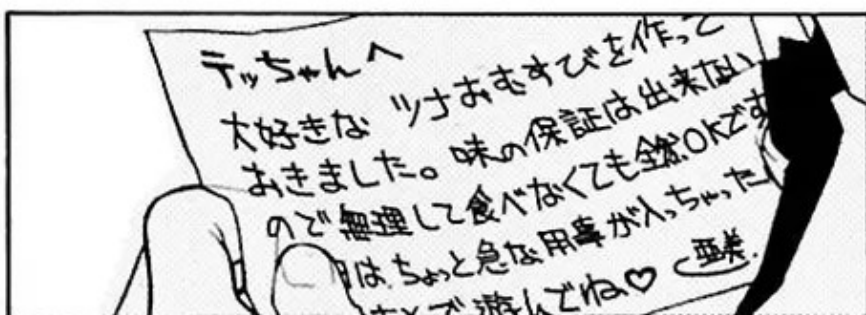 テッちゃんへ
大好きな ツナおむすびを作って
おきました。味の保証は出来ない
ので無理して食べなくても全然OKです
は、ちょっと急な用事が入っちゃった
で遊んでね♡ 亜美